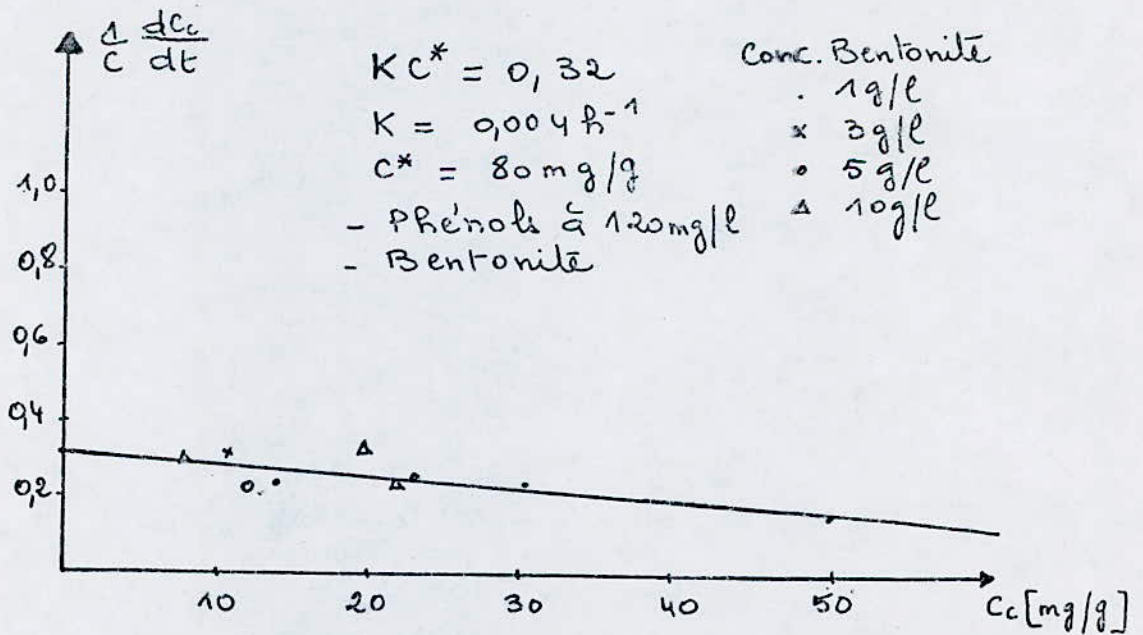 1/C dCc/dt
KC* = 0,32
K = 0,004 h⁻¹
C* = 80 mg/g
- Phénols à 120mg/l
- Bentonite
Conc. Bentonite
. 1g/l
x 3g/l
• 5g/l
△ 10g/l
1,0
0,8
0,6
0,4
0,2
10 20 30 40 50 Cc [mg/g]